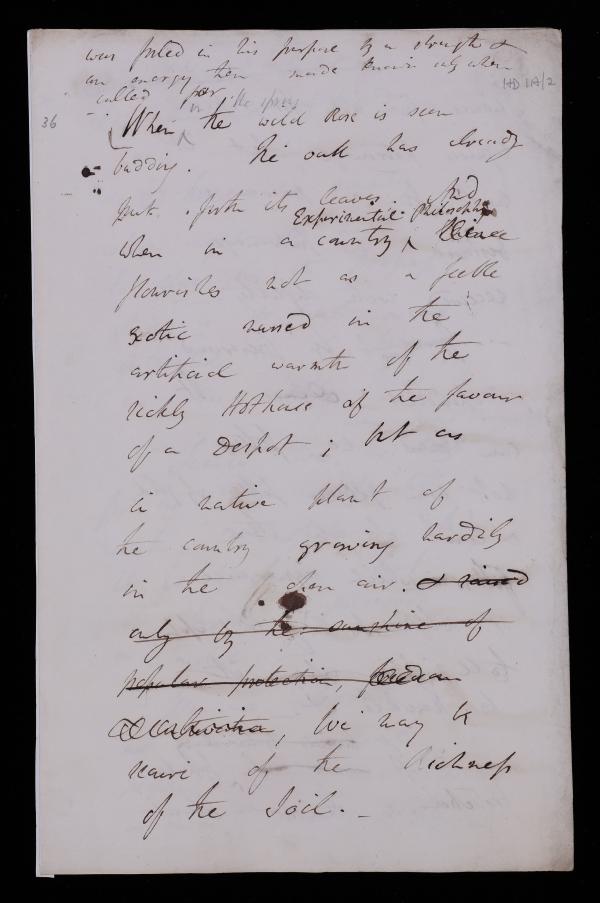 was foiled in his purpose by a strength &
an energy then made known only when
called for
HD 1A/2
36
in the spring
When the wild Rose is seen
budding. The oak has already
put forth its leaves. And
Experimental Philosophy
when in a country Science
flourishes not as a feeble
exotic nursed in the
artificial warmth of the
sickly Hothouse of the favour
of a Despot; but as
a native plant of
the country growing hardily
in the open air. & raised
only by the sunshine of
popular protection, freedom
& cultivation, We may be
secure of the Richness
of the Soil. -